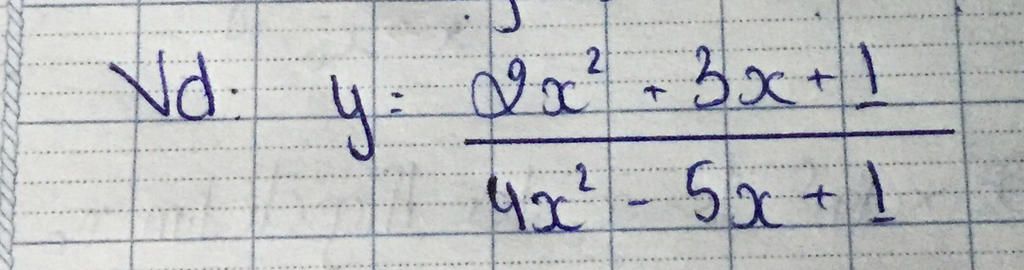 Vd: y = \frac{2x^2 + 3x + 1}{4x^2 - 5x + 1}